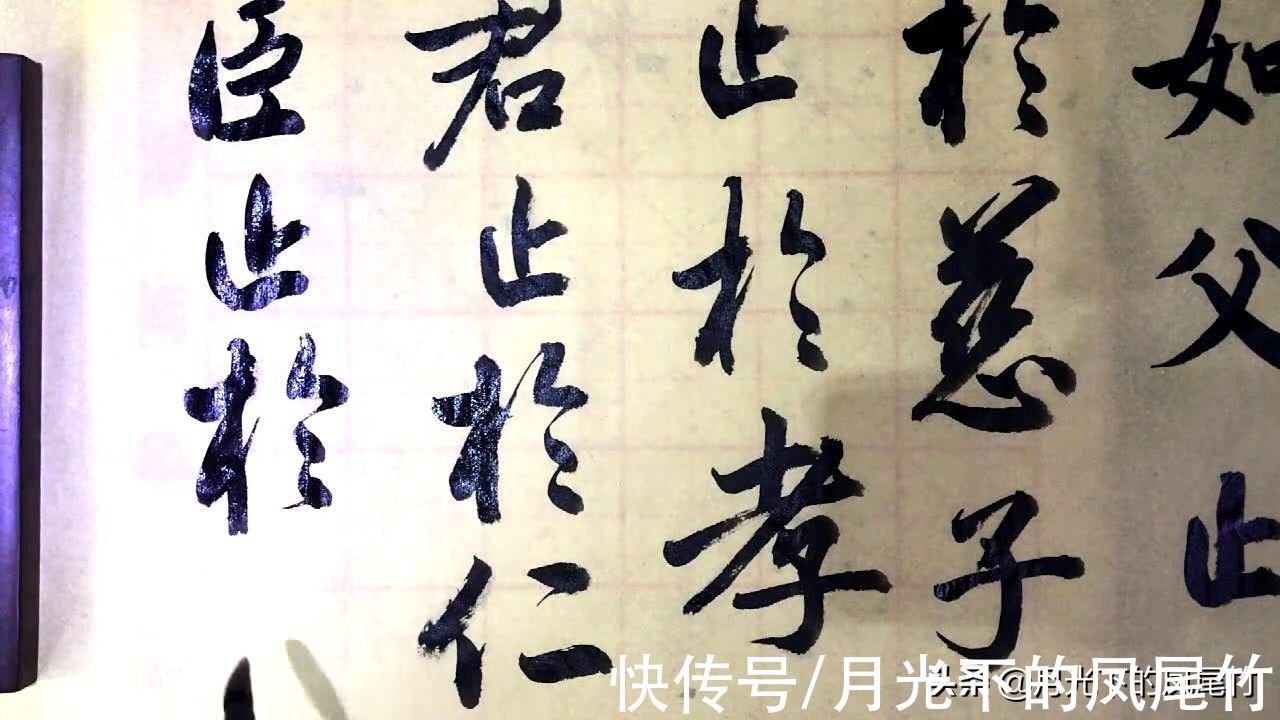 如父止
於慈子
止於孝
君止於仁
臣止於
快传号/月光下的凤尾竹
头条 @月光下的凤尾竹